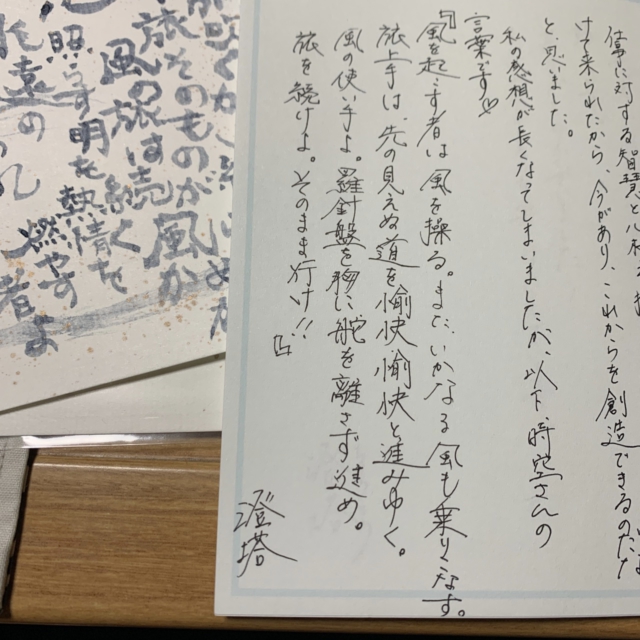 事に対する智慧と心
けて来られたから、今があり、これからを創造できるのだな
と、思いました。
私の感想が長くなってしまいましたが、以下、時空さんの
言葉です♡
『風を起こす者は風を操る。また、いかなる風も乗りこなす。
旅上手は、先の見えぬ道を愉快愉快と進みゆく。
風の使い手よ。羅針盤を胸に舵を離さず進め。
旅を続けよ。そのまま行け!!』
澄塔
旅そのものが風か
風の旅は続く
照らす明を熱情を
燃やす
者よ